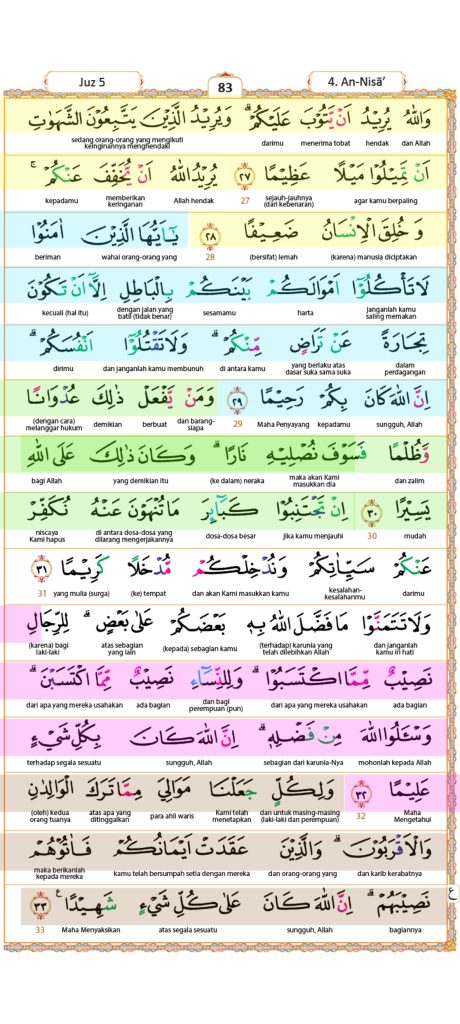 Juz 5
83
4. An-Nisā’
وَاللّٰهُ يُرِيْدُ اَنْ يَّتُوْبَ عَلَيْكُمْۗ وَيُرِيْدُ الَّذِيْنَ يَتَّبِعُوْنَ الشَّهَوٰتِ
dan Allah hendak menerima tobat darimu sedang orang-orang yang mengikuti keinginannya menghendaki
اَنْ تَمِيْلُوْا مَيْلًا عَظِيْمًا ۝٢٧ يُرِيْدُ اللّٰهُ اَنْ يُّخَفِّفَ عَنْكُمْۚ
agar kamu berpaling sejauh-jauhnya (dari kebenaran) 27 Allah hendak memberikan keringanan kepadamu
وَخُلِقَ الْاِنْسَانُ ضَعِيْفًا ۝٢٨ يٰٓاَيُّهَا الَّذِيْنَ اٰمَنُوْا
(karena) manusia diciptakan (bersifat) lemah 28 wahai orang-orang yang beriman
لَا تَأْكُلُوْٓا اَمْوَالَكُمْ بَيْنَكُمْ بِالْبَاطِلِ اِلَّآ اَنْ تَكُوْنَ
janganlah kamu saling memakan harta sesamamu dengan jalan yang batil (tidak benar) kecuali (hal itu)
تِجَارَةً عَنْ تَرَاضٍ مِّنْكُمْۗ وَلَا تَقْتُلُوْٓا اَنْفُسَكُمْۗ
dalam perdagangan yang berlaku atas dasar suka sama suka di antara kamu dan janganlah kamu membunuh dirimu
اِنَّ اللّٰهَ كَانَ بِكُمْ رَحِيْمًا ۝٢٩ وَمَنْ يَّفْعَلْ ذٰلِكَ عُدْوَانًا
sungguh, Allah kepadamu Maha Penyayang 29 dan barang-siapa berbuat demikian (dengan cara) melanggar hukum
وَّظُلْمًا فَسَوْفَ نُصْلِيْهِ نَارًاۗ وَكَانَ ذٰلِكَ عَلَى اللّٰهِ
dan zalim maka akan Kami masukkan dia (ke dalam) neraka yang demikian itu bagi Allah
يَسِيْرًا ۝٣٠ اِنْ تَجْتَنِبُوْا كَبَاۤىِٕرَ مَا تُنْهَوْنَ عَنْهُ نُكَفِّرْ
mudah 30 jika kamu menjauhi dosa-dosa besar di antara dosa-dosa yang dilarang mengerjakannya niscaya Kami hapus
عَنْكُمْ سَيِّاٰتِكُمْ وَنُدْخِلْكُمْ مُّدْخَلًا كَرِيْمًا ۝٣١
darimu kesalahan-kesalahanmu dan akan Kami masukkan kamu (ke) tempat yang mulia (surga) 31
وَلَا تَتَمَنَّوْا مَا فَضَّلَ اللّٰهُ بِهٖ بَعْضَكُمْ عَلٰى بَعْضٍۗ لِلرِّجَالِ
dan janganlah kamu iri hati (terhadap) karunia yang telah dilebihkan Allah (kepada) sebagian kamu atas sebagian yang lain (karena) bagi laki-laki
نَصِيْبٌ مِّمَّا اكْتَسَبُوْاۗ وَلِلنِّسَاۤءِ نَصِيْبٌ مِّمَّا اكْتَسَبْنَۗ
ada bagian dari apa yang mereka usahakan dan bagi perempuan (pun) ada bagian dari apa yang mereka usahakan
وَسْـَٔلُوا اللّٰهَ مِنْ فَضْلِهٖۗ اِنَّ اللّٰهَ كَانَ بِكُلِّ شَيْءٍ
mohonlah kepada Allah sebagian dari karunia-Nya sungguh, Allah terhadap segala sesuatu
عَلِيْمًا ۝٣٢ وَلِكُلٍّ جَعَلْنَا مَوَالِيَ مِمَّا تَرَكَ الْوَالِدٰنِ
Maha Mengetahui 32 dan untuk masing-masing (laki-laki dan perempuan) Kami telah menetapkan para ahli waris atas apa yang ditinggalkan (oleh) kedua orang tuanya
وَالْاَقْرَبُوْنَۗ وَالَّذِيْنَ عَقَدَتْ اَيْمَانُكُمْ فَاٰتُوْهُمْ
dan karib kerabatnya dan orang-orang yang kamu telah bersumpah setia dengan mereka maka berikanlah kepada mereka
نَصِيْبَهُمْۗ اِنَّ اللّٰهَ كَانَ عَلٰى كُلِّ شَيْءٍ شَهِيْدًا ۝٣٣ ع
bagiannya sungguh, Allah atas segala sesuatu Maha Menyaksikan 33